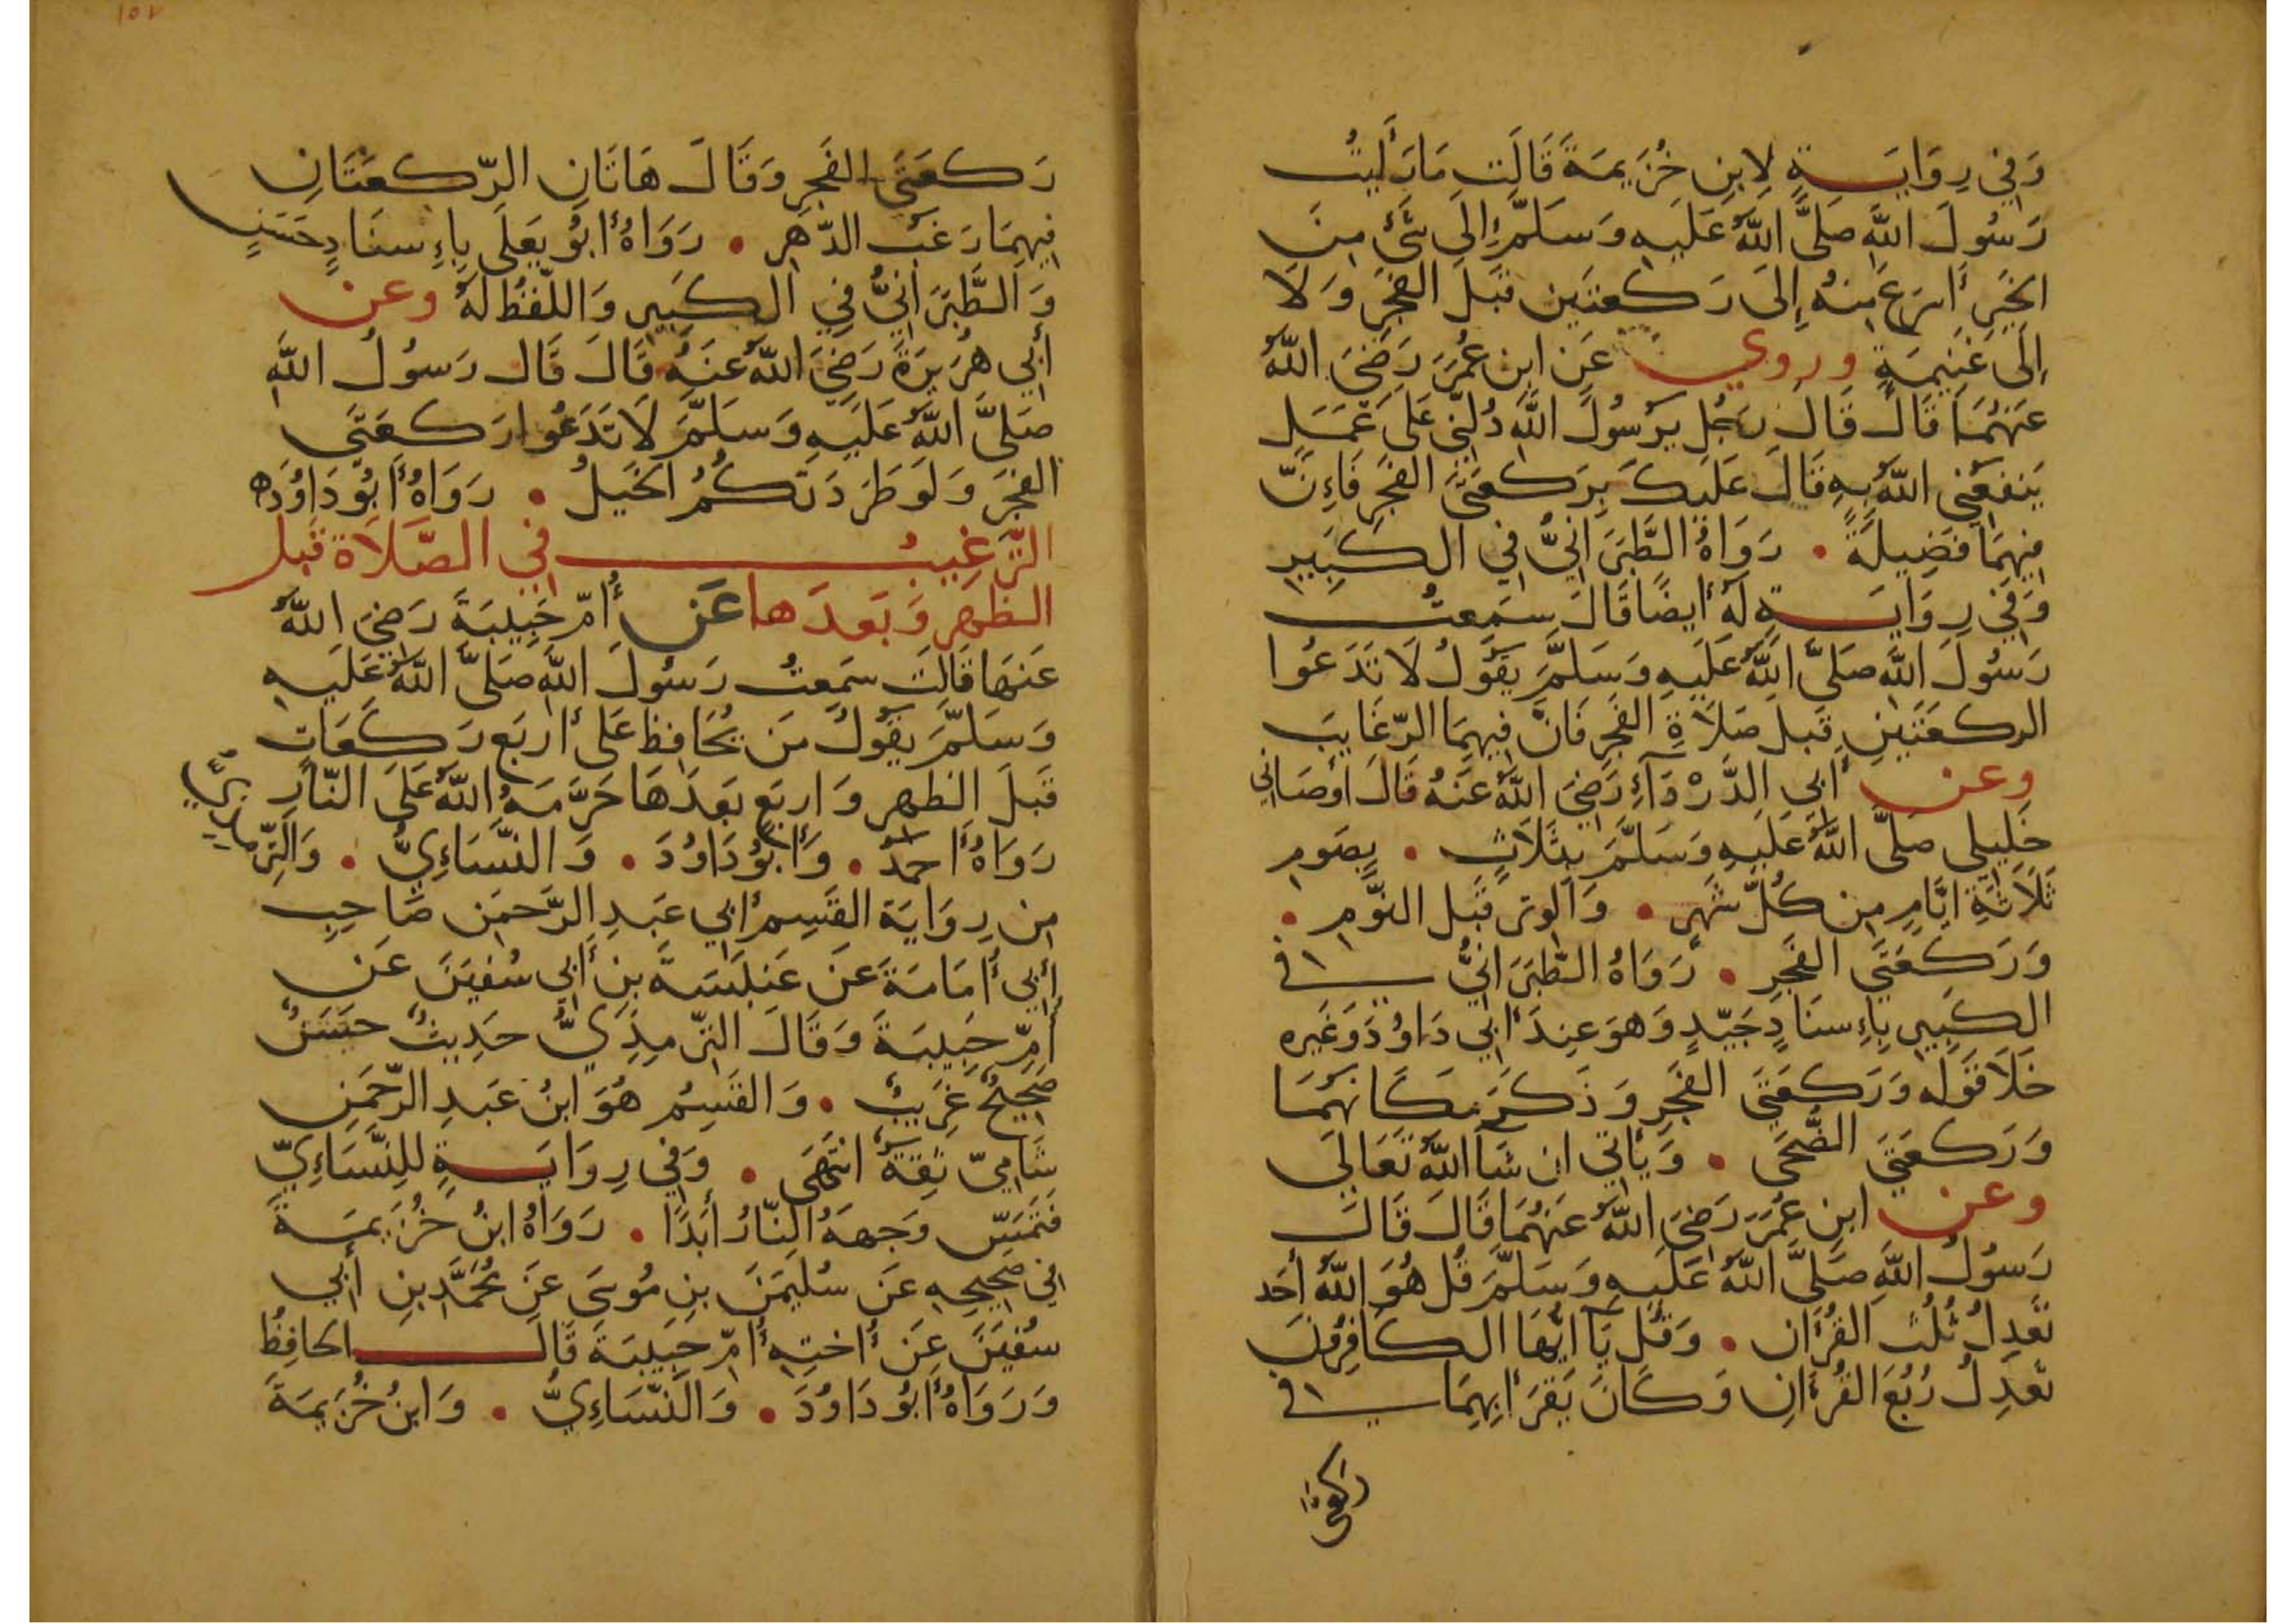 وَفِي رِوَايَةٍ لِابنِ خُزَيمَةَ قَالَت مَا رَأَيتُ
رَسُولَ اللَّهِ صَلَّى اللَّهُ عَلَيهِ وَسَلَّمَ إِلَى شَئٍ مِنَ
الخَيرِ أَسرَعَ مِنهُ إِلَى رَكعتَينِ قَبلَ الفَجرِ وَلَا
إِلَى غَنِيمَةٍ وروي عَن ابنِ عُمَرَ رَضِيَ اللَّهُ
عَنهُمَا قَالَ قَالَ رَجُل يَرَسُولَ اللَّهِ دُلَّنِي عَلَى عَمَلٍ
يَنفَعُنِي اللَّهُ بِهِ قَالَ عَلَيكَ بِرَكعَتَي الفَجرِ فَإِنَّ
فِيهِمَا فَضِيلَةً . رَوَاهُ الطَّبَرَانِيُّ فِي الكَبِيرِ
وَفِي رِوَايَةٍ لَهُ أَيضًا قَالَ سَمِعتُ
رَسُولَ اللَّهِ صَلَّى اللَّهُ عَلَيهِ وَسَلَّمَ يَقُولُ لَا تَدَعُوا
الركعَتَينِ قَبلَ صَلَاةِ الفَجرِ فَانَّ فِيهِمَا الرّغَايبَ
وعن أَبِي الدَّرْدَآءِ رَضِيَ اللَّهُ عَنهُ قَالَ اَوصَانِي
خَلِيلِي صَلَّى اللَّهُ عَلَيهِ وَسَلَّمَ بِثَلَاثٍ . بِصَومِ
ثَلَاثَةِ ايَّامٍ مِن كُلِّ شَهرٍ . وَالوترِ قَبلَ النَّومِ .
وَرَكعَتَي الفَجرِ . رَوَاهُ الطَّبَرَانِيُّ في
الكَبِيرِ بِإِسنَادٍ جَيّدٍ وَهوَ عِندَ أَبِي دَاوُدَ وَغَيرِه
خَلَا قَولَه وَرَكعَتَي الفَجرِ وَذَكَرَ مَكَانَهُمَا
وَرَكعَتَي الضُّحَى . وَيَأتِي ان شَآ اللَّهُ تَعَالَى
وعن ابنِ عُمَرَ رَضِيَ اللَّهُ عَنهُمَا قَالَ قَالَ
رَسُولُ اللَّهِ صَلَّى اللَّهُ عَلَيهِ وَسَلَّمَ قُل هُوَ اللَّهُ أَحَد
تَعدِلُ ثُلُثَ القُرءَان . وَقُل يَآ ايُّهَا الكَافِرُونَ
تَعدِلُ رُبُعَ القُرءَانِ وَكَانَ يَقرَأ بِهِمَا في
ركعتي
رَكعَتَي الفَجرِ وَقَالَ هَاتَانِ الرّكعَتَانِ
فِيهِمَا رَغبُ الدّهرِ . رَوَاهُ أَبُو يَعلَى بِإِسنَادٍ حَسَنٍ
وَالطَّبَرَانِيُّ فِي الكَبِيرِ وَاللّفظُ لَهُ وعن
أَبِي هُرَيرَةَ رَضِيَ اللَّهُ عَنهُ قَالَ قَالَ رَسُولُ اللَّهِ
صَلَّى اللَّهُ عَلَيهِ وَسَلَّمَ لَا تَدَعُوا رَكعَتَي
الفَجرَ وَلَو طَرَدَتكُمُ الخَيلُ . رَوَاهُ أَبُو دَاوُدَ ه
التَّرغِيبُ فِي الصَّلَاة قَبل
الظهرِ وَبَعدَها عَن أُمّ حَبِيبَةَ رَضِيَ اللَّهُ
عَنهَا قَالَت سَمِعتُ رَسُولَ اللَّهِ صَلَّى اللَّهُ عَلَيهِ
وَسَلَّمَ يَقُولُ مَن يُحَافِظ عَلَى أَربَعِ رَكعَاتٍ
قَبلَ الظهرِ وَاربَعٍ بَعدَهَا حَرَّمَهُ اللَّهُ عَلَى النَّارِ
رَوَاهُ أَحمَدُ . وَأَبُو دَاوُدَ . وَالنَّسَاءِيُّ . وَالتّرمذِيُّ
مِن رِوَايَة القَسِم أَبِي عَبدِ الرَّحمَنِ صَاحِبِ
أَبِي أُمَامَةَ عَن عَنبَسَةَ بنِ أَبِي سُفيَنَ عَن
أُمِّ حَبِيبَةَ وَقَالَ التّرمِذِيُّ حَدِيثٌ حَسَنٌ
صَحِيحٌ غَرِيبٌ . وَالقَسِمُ هُوَ ابنُ عَبدِ الرَّحمَنِ
شَامِيّ ثِقَةٌ انتَهَى . وَفِي رِوَايَةٍ لِلنَّسَاءِيّ
فَتَمَسّ وَجهَهُ النَّارُ أَبَدًا . رَوَاهُ ابنُ خُزَيمَةَ
فِي صَحِيحِهِ عَن سُلَيمَنَ بنِ مُوسَى عَن مُحَمَّدِ بنِ أَبِي
سُفيَنَ عَن أُختِهِ أُمّ حَبِيبَةَ قَالَ الحَافِظُ
وَرَوَاهُ أَبُو دَاوُدَ . وَالنَّسَاءِيُّ . وَابنُ خُزَيمَةَ